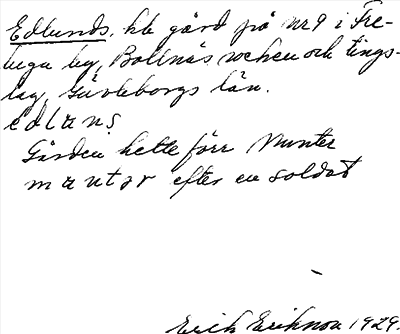 Edlunds, hb gård på nr 9 i Fre-
luga by, Bollnäs socken och tings-
lag, Gävleborgs län.
edlans
Gården hette förr Munter
muntər efter en soldat
Erik Erikson 1929.